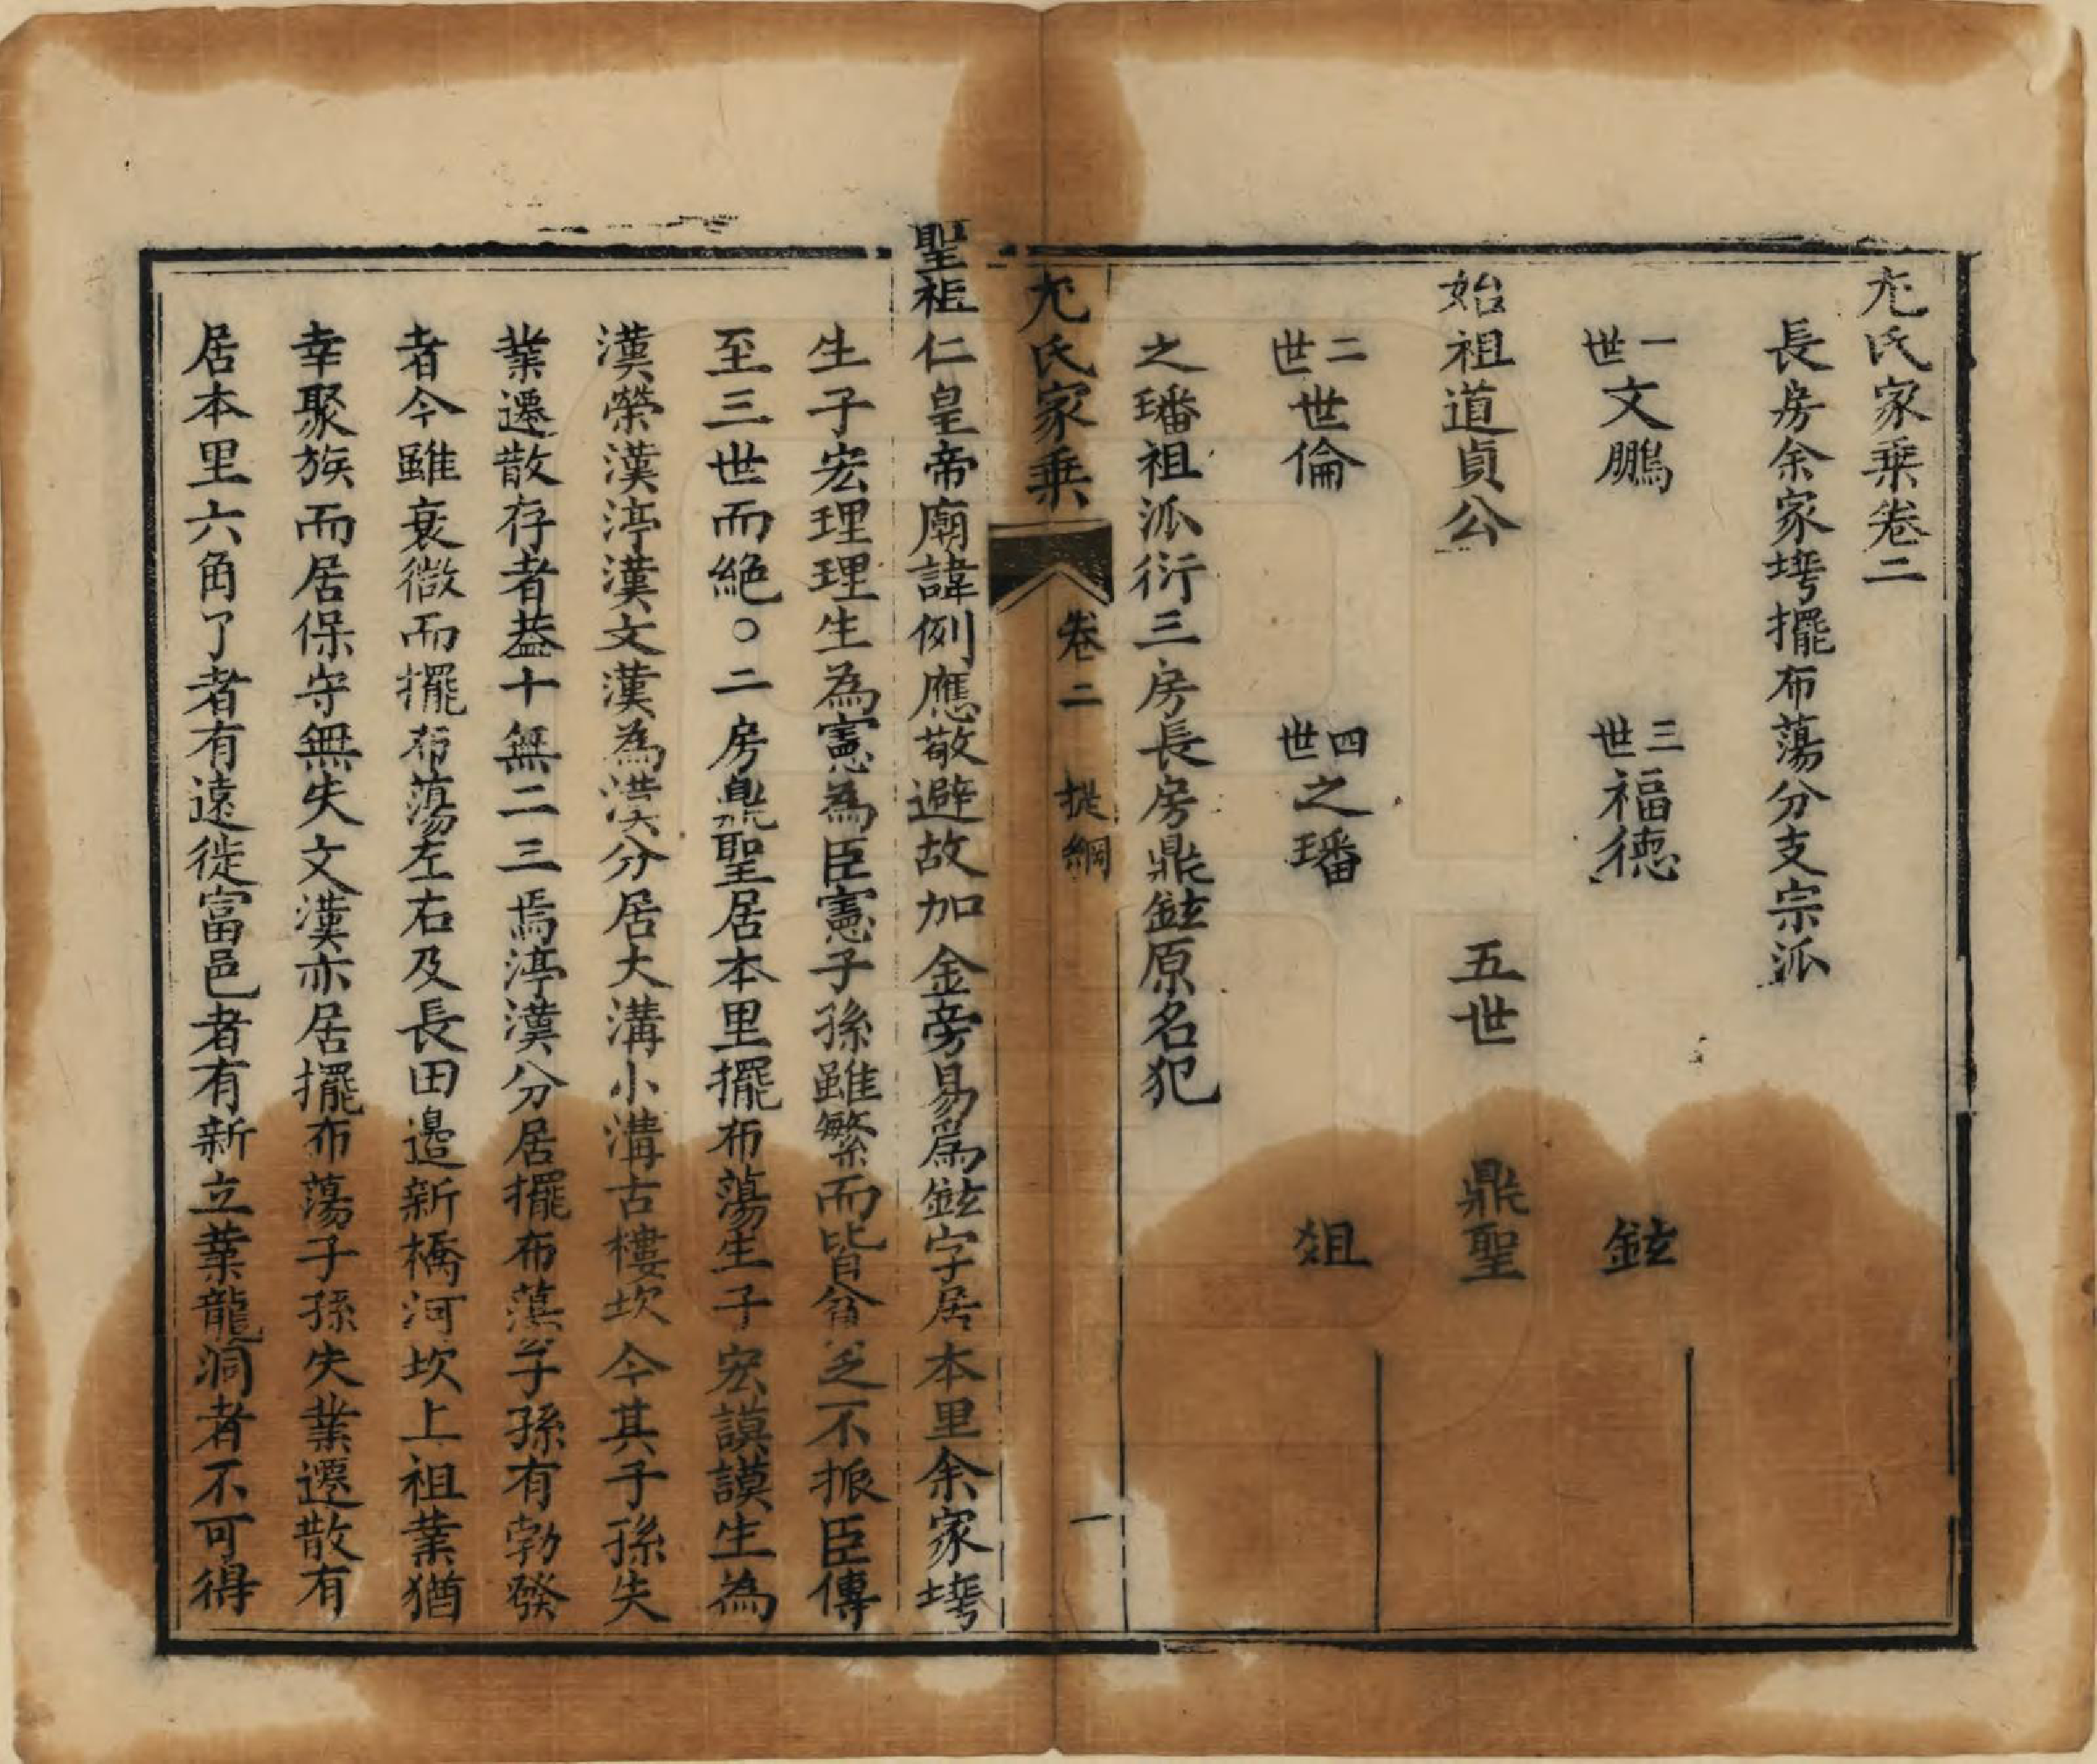 尢氏家乘卷二
長房余家塆擺布蕩分支宗派
一世文鵬 三世福德 鉉
始祖道貞公 五世 鼎聖
二世世倫 四世之璠 俎
之璠祖派衍三房長房鼎鉉原名犯
尢氏家乘 卷二 提綱 一
聖祖仁皇帝廟諱例應敬避故加金旁易為鉉字居本里余家塆
生子宏理理生為憲為臣憲子孫雖繁而皆貧乏不振臣傳
至三世而絕○二房鼎聖居本里擺布蕩生子宏謨謨生為
漢榮漢渟漢文漢為漢分居大溝小溝古樓坎今其子孫失
業遷散存者葢十無二三焉渟漢分居擺布蕩子孫有勃發
者今雖衰微而擺布蕩左右及長田邉新橋河坎上祖業猶
幸聚族而居保守無失文漢亦居擺布蕩子孫失業遷散有
居本里六角了者有遠徙富邑者有新立業龍洞者不可得